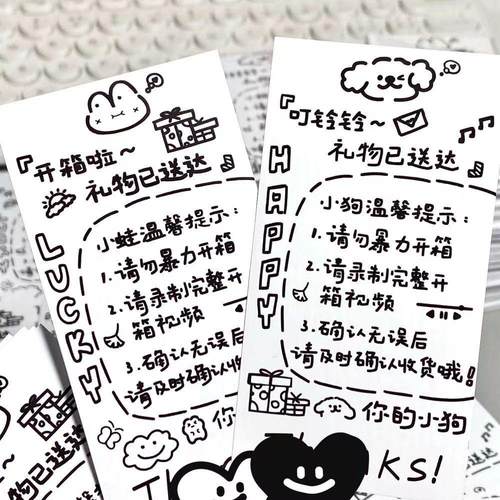 『开箱啦~
礼物已送达』
LUCKY
小蛙温馨提示:
1.请勿暴力开箱
2.请录制完整开
箱视频
3.确认无误后
请及时确认收货
你
T
『叮铃铃~
礼物已送达』
HAPPY
小狗温馨提示:
1.请勿暴力开箱
2.请录制完整开
箱视频
3.确认无误后
请及时确认收货哦!
你的小狗
KS!